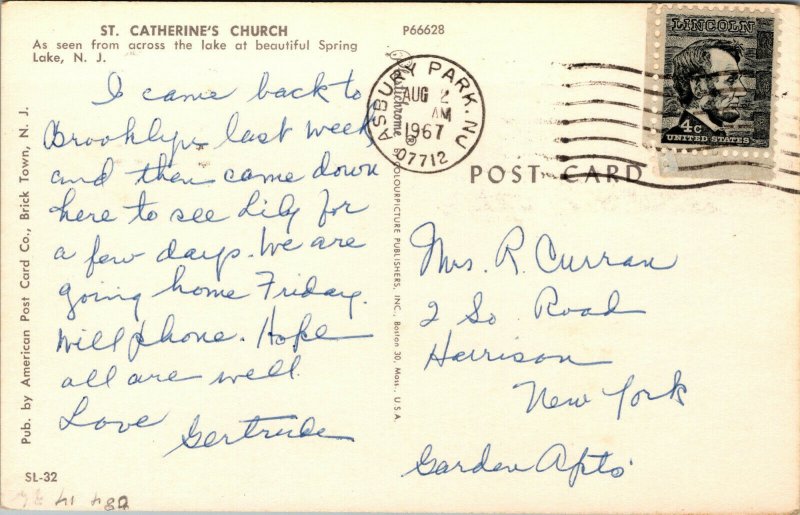 ST. CATHERINE'S CHURCH
As seen from across the lake at beautiful Spring
Lake, N. J.
P66628
I came back to
Brooklyn last week,
and then came down
here to see Lily for
a few days. We are
going home Friday.
Will phone. Hope
all are well.
Love
Gertrude
Pub. by American Post Card Co., Brick Town, N. J.
SL-32
COLOURPICTURE PUBLISHERS, INC., Boston 30, Mass., U.S.A.
ASBURY PARK, NJ
AUG 2
AM
1967
07712
LINCOLN
4c
UNITED STATES
POST CARD
Mrs. R. Curran
2 So. Road
Harrison
New York
Garden Apts